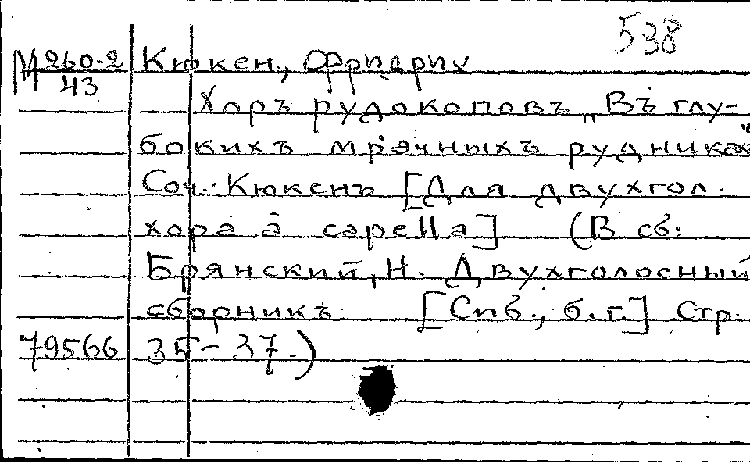 538
М 260-2 Кюкен, Фридрих
43
Хоръ рудокоповъ „Въ глу-
бокихъ мрачныхъ рудникахъ"
Соч. Кюкенъ [Для двухгол.
хора a capella] (В сб:
Брянский, Н. Двухголосный
сборникъ [Спб., б.г.] Стр.
79566 35-37.)